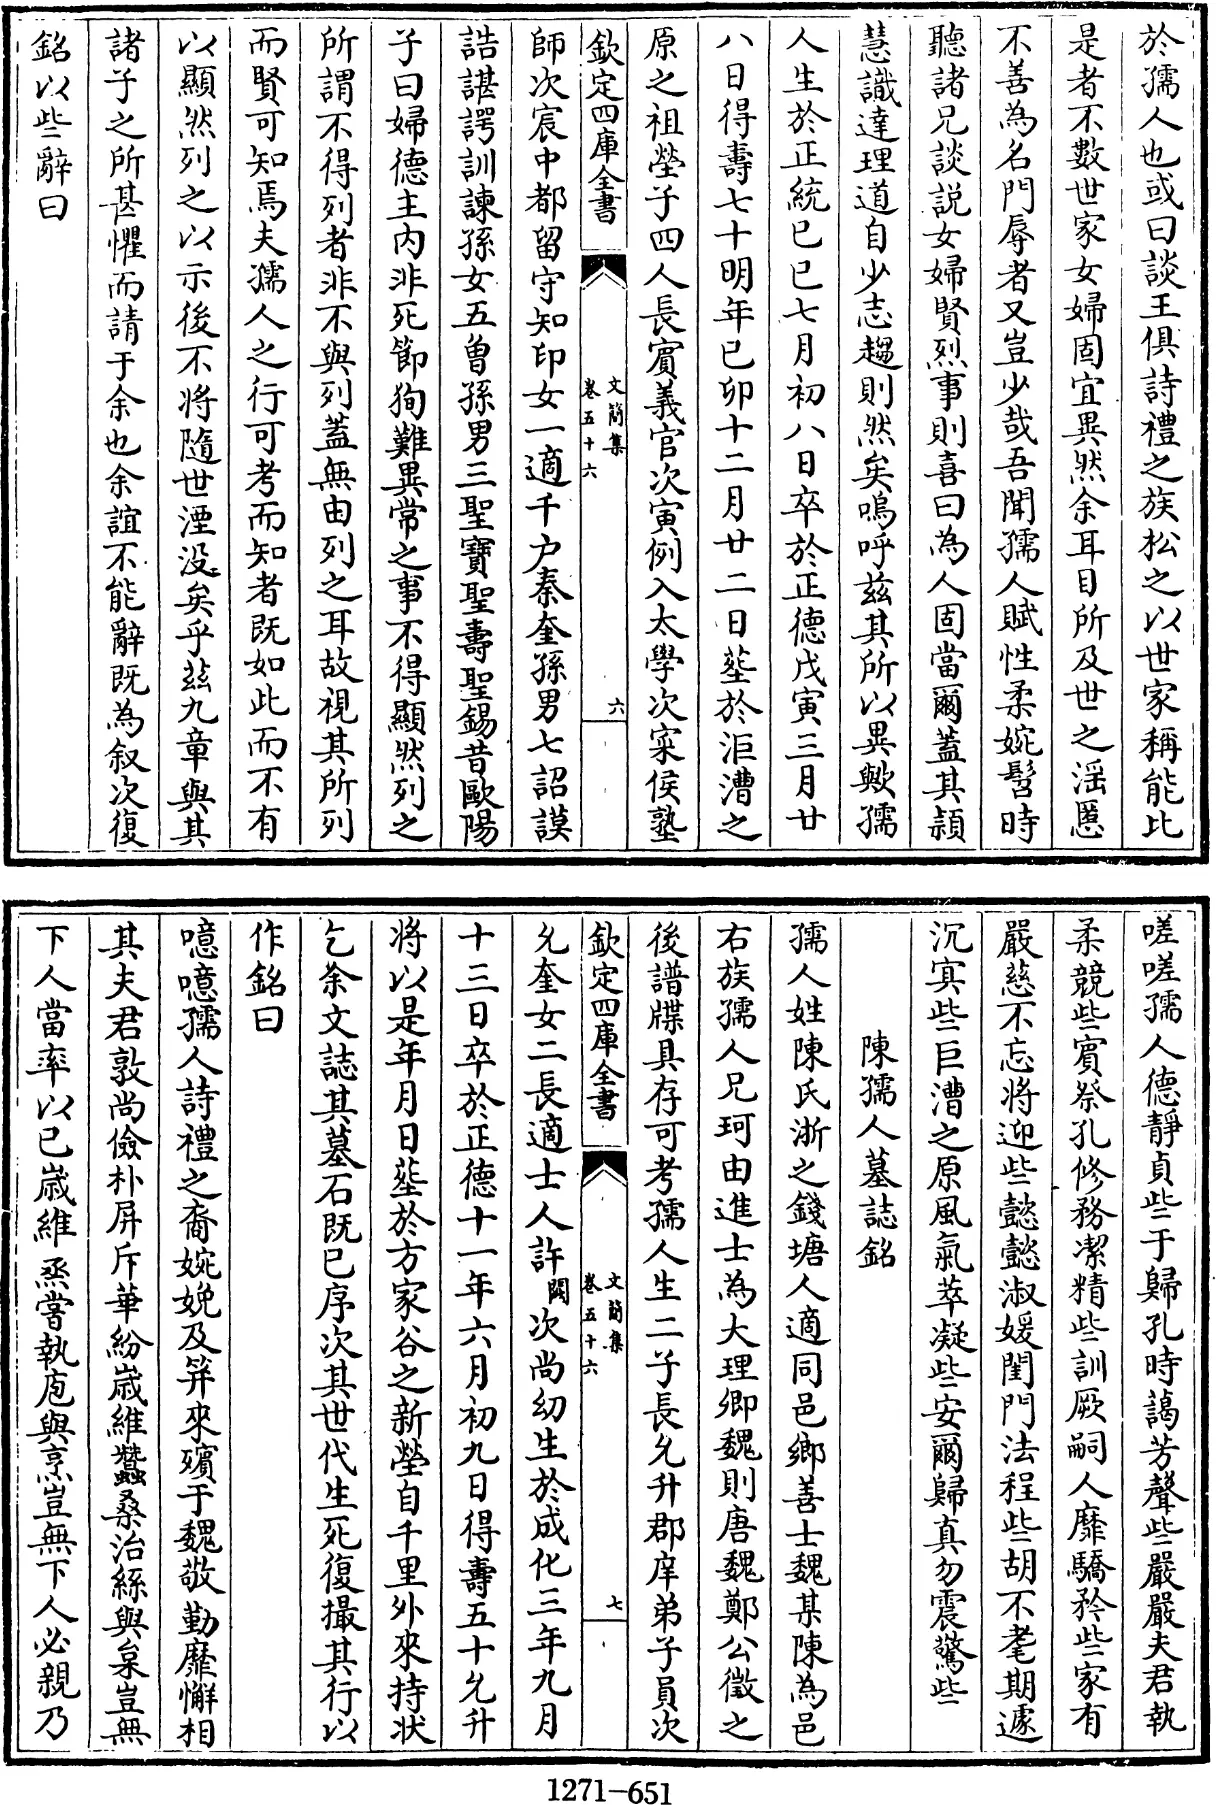 於孺人也或曰談王俱詩禮之族松之以世家稱能比
是者不數世家女婦固宜異然余耳目所及世之滛慝
不善為名門辱者又豈少哉吾聞孺人賦性柔婉髫時
聽諸兄談說女婦賢烈事則喜曰為人固當爾蓋其頴
慧識達理道自少志趨則然矣嗚呼兹其所以異歟孺
人生於正統己巳七月初八日卒於正德戊寅三月廿
八日得壽七十明年己卯十二月廿二日塟於洰漕之
原之祖塋子四人長賔義官次寅例入太學次寀侯塾
欽定四庫全書
文簡集
卷五十六
六
師次宸中都留守知印女一適千户秦奎孫男七詔謨
誥諶諤訓諫孫女五曾孫男三聖寶聖壽聖錫昔歐陽
子曰婦德主内非死節狥難異常之事不得顯然列之
所謂不得列者非不與列蓋無由列之耳故視其所列
而賢可知焉夫孺人之行可考而知者既如此而不有
以顯然列之以示後不將隨世湮没矣乎兹九章與其
諸子之所甚懼而請于余也余誼不能辭既為叙次復
銘以些辭曰
嗟嗟孺人德靜貞些于歸孔時藹芳聲些嚴嚴夫君執
柔競些賔祭孔修務潔精些訓厥嗣人靡驕矜些家有
嚴慈不忘將迎些懿懿淑媛閨門法程些胡不耄期遽
沉冥些巨漕之原風氣萃凝些安爾歸真勿震驚些
陳孺人墓誌銘
孺人姓陳氏浙之錢塘人適同邑鄉善士魏某陳為邑
右族孺人兄珂由進士為大理卿魏則唐魏鄭公徵之
後譜牒具存可考孺人生二子長允升郡庠弟子員次
欽定四庫全書
文簡集
卷五十六
七
允奎女二長適士人許闕次尚幼生於成化三年九月
十三日卒於正德十一年六月初九日得壽五十允升
將以是年月日塟於方家谷之新塋自千里外來持狀
乞余文誌其墓石既已序次其世代生死復撮其行以
作銘曰
噫噫孺人詩禮之裔婉娩及笄來嬪于魏敬勤靡懈相
其夫君敦尚儉朴屏斥華紛歲維蠶桑治絲與枲豈無
下人當率以已歲維烝嘗執庖與烹豈無下人必親乃
1271-651